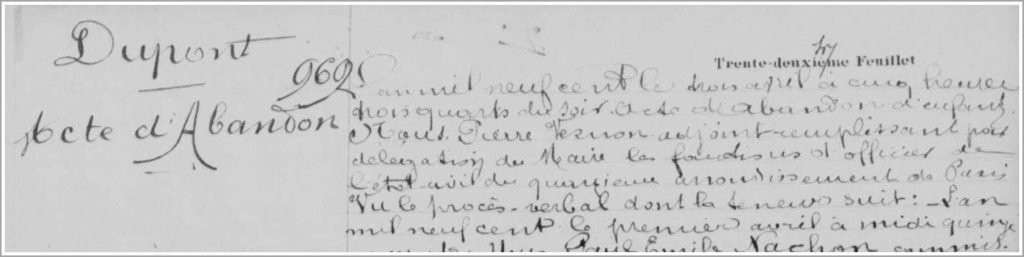 Dupont
969
Acte d'Abandon
Trente-deuxième Feuillet
L'an mil neuf cent le trois avril à cinq heures
trois quarts du soir. Acte de Abandon d'enfant.
Nous, Pierre Vernon adjoint remplissant par
délégation du Maire les fonctions d'officier de
l'état-civil du quinzième arrondissement de Paris
Vu le procès-verbal dont la teneur suit: - L'an
mil neuf cent le premier avril à midi quinze
Paul Emile Nachon commis.